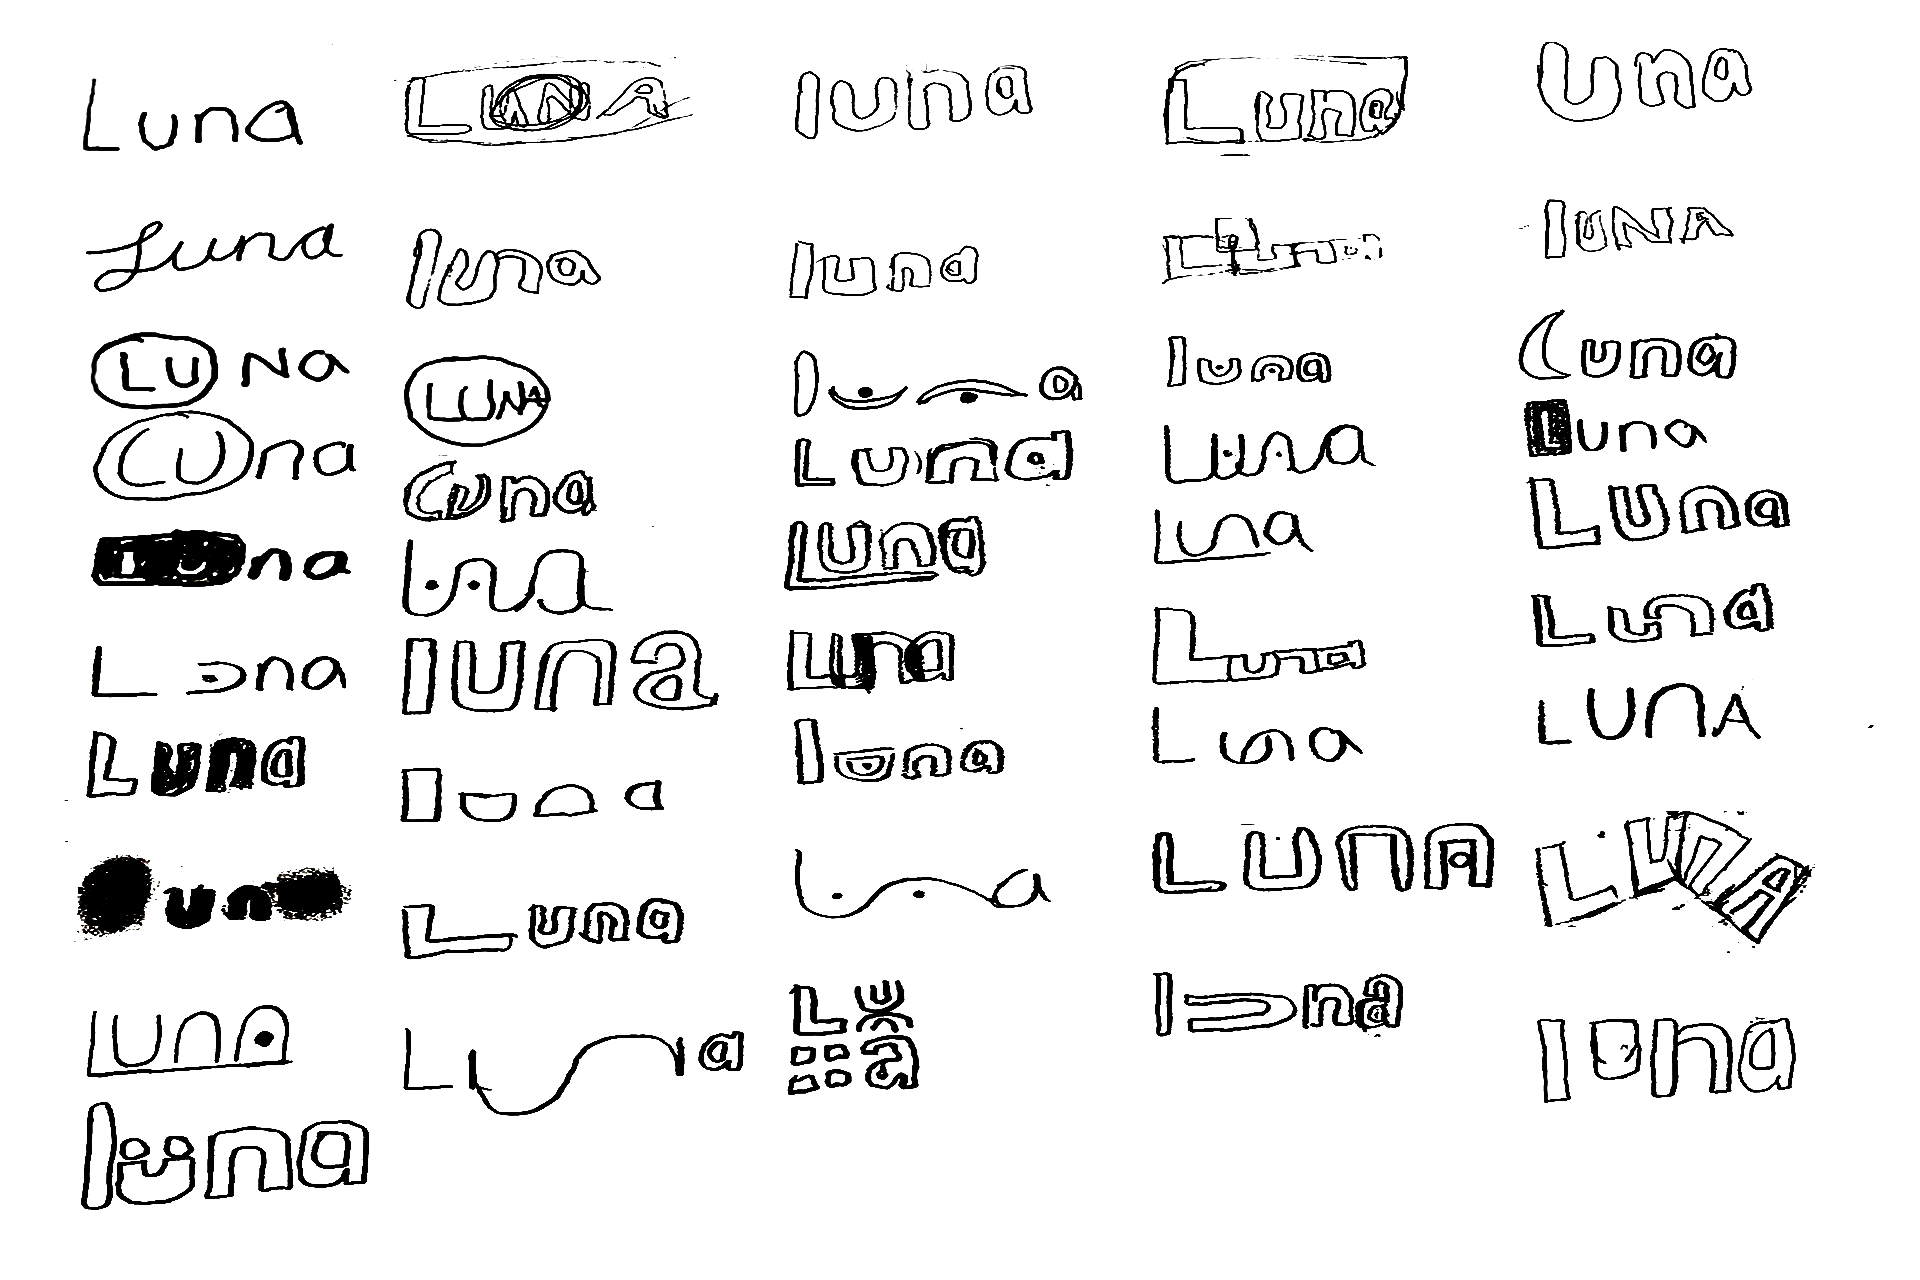 Luna
LUNA
luna
Luna
una
Luna
luna
luna
Luna
luNA
LUNA
LUNA
luna
luna
Luna
Luna
Luna
Luna
Luna
Luna
Luna
Luna
Luna
Luna
Luna
Luna
Luna
luna
Luna
Luna
Luna
Luna
luna
luna
Luna
LUNA
una
Luna
Luna
LUNA
LUNA
LUNA
Luna
Luna
luna
luna
luna